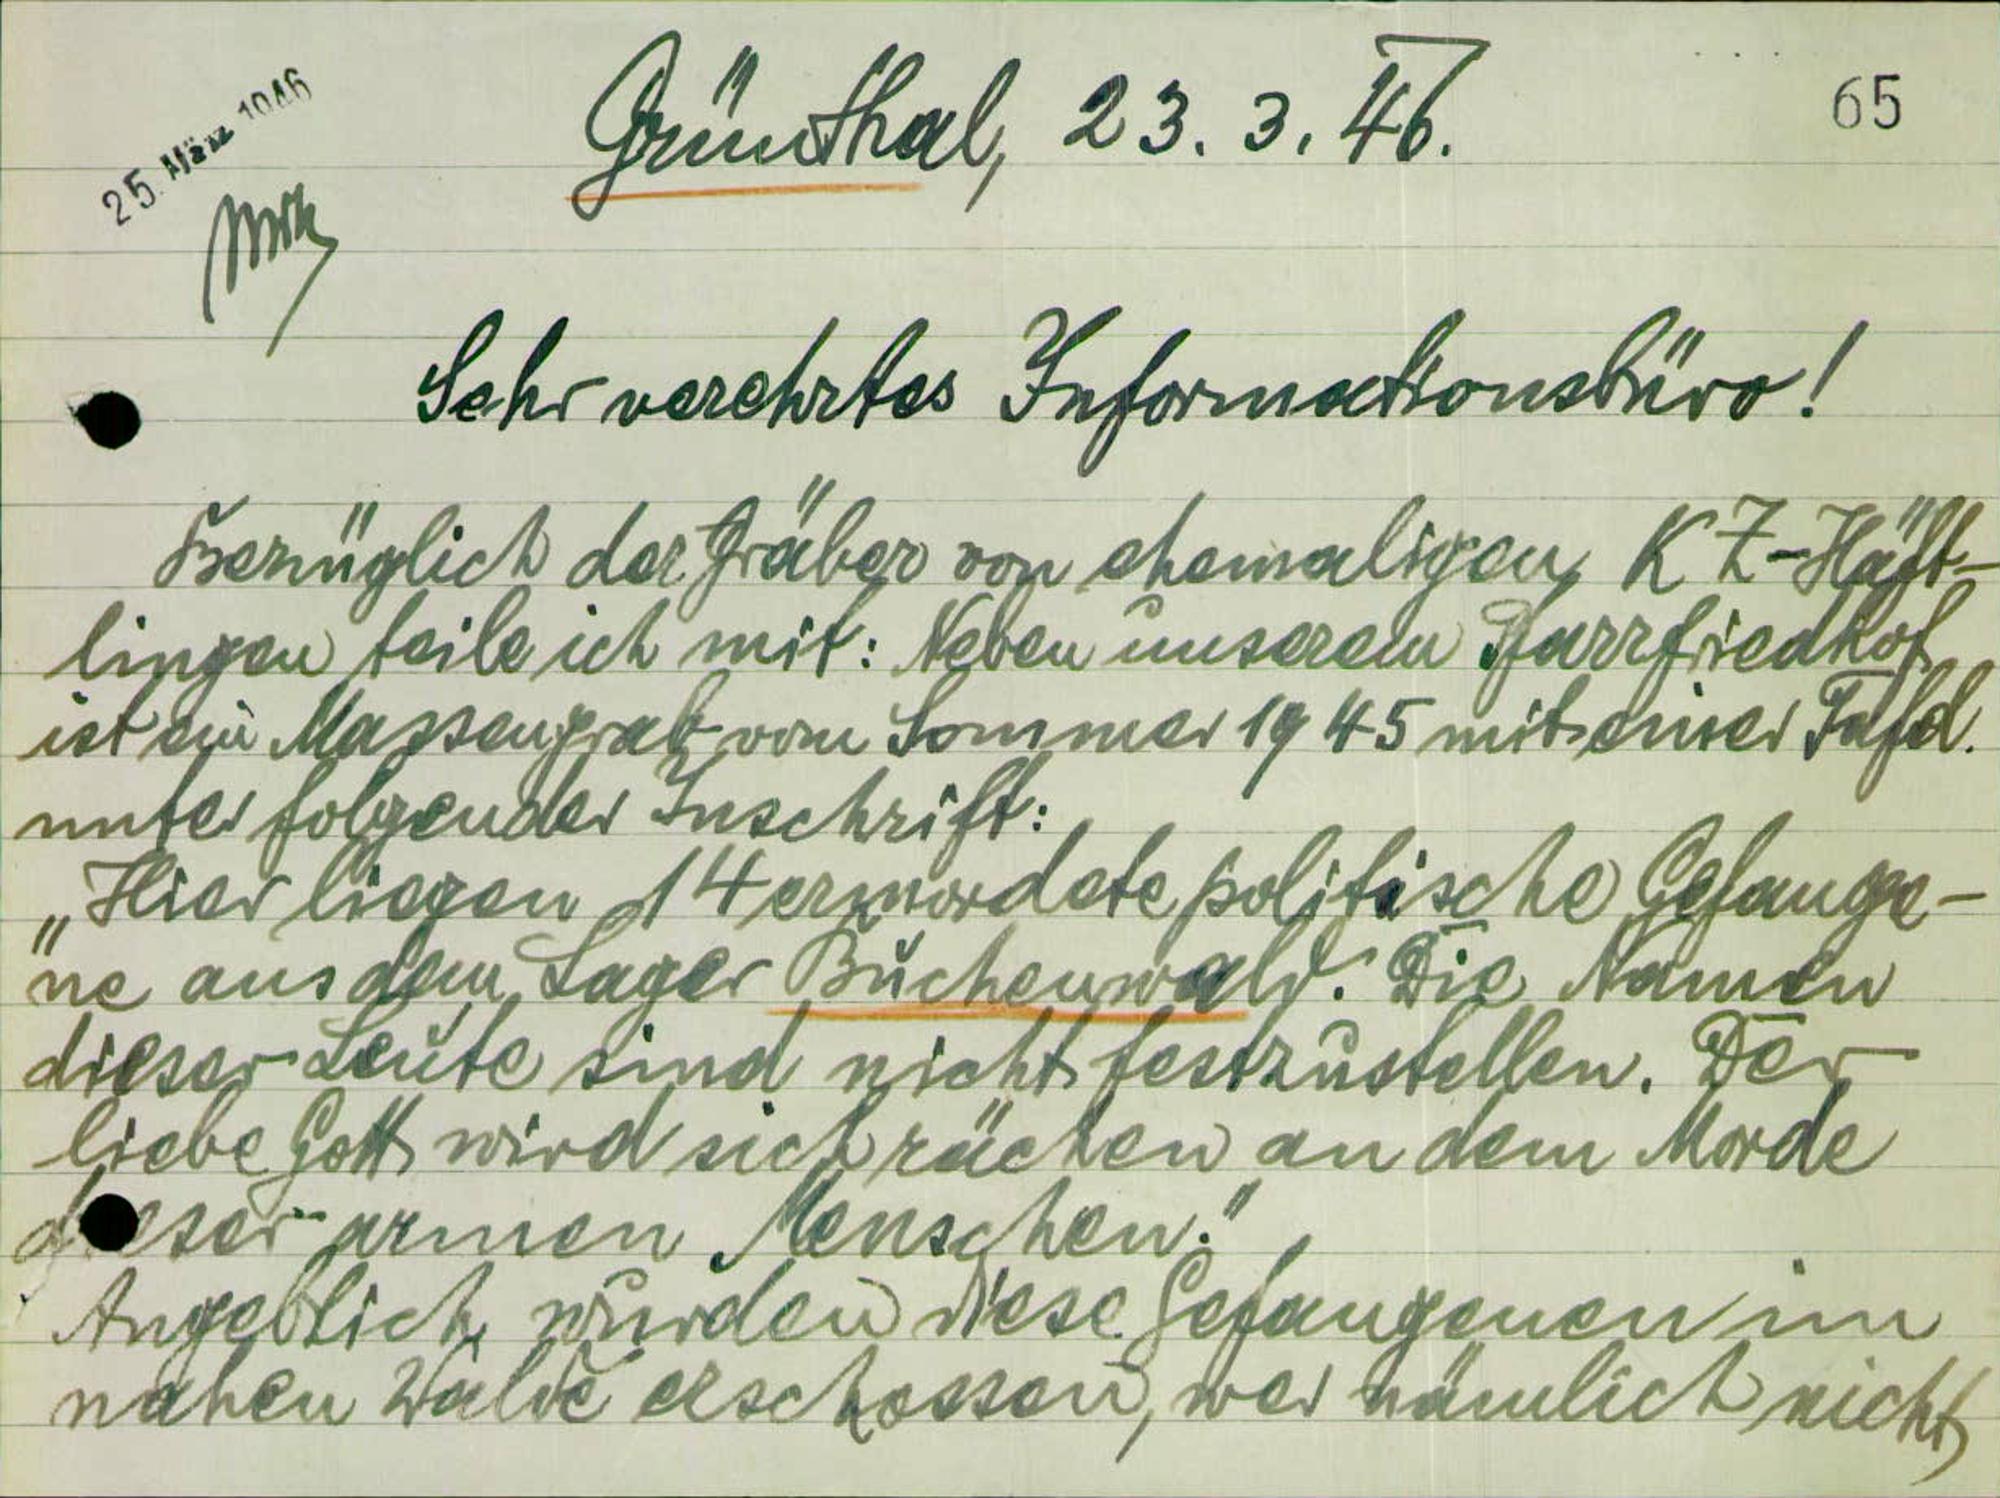 65
25. März 1946
Grünthal, 23. 3. 46.
Sehr verehrtes Informationsbüro!
Bezüglich der Gräber von ehemaligen KZ-Häft-
lingen teile ich mit: Neben unserem Pfarrfriedhof
ist ein Massengrab vom Sommer 1945 mit einer Tafel
unter folgender Inschrift:
„Hier liegen 14 ermordete politische Gefange-
ne aus dem Lager Buchenwald. Die Namen
dieser Leute sind nicht festzustellen. Der
liebe Gott wird sich rächen an dem Morde
dieser armen Menschen."
Angeblich wurden diese Gefangenen im
nahen Walde erschossen, wer nämlich nicht